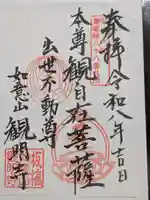 奉拝 令和八年吉日
本尊観自在菩薩
出世不動尊
如意山 観明寺